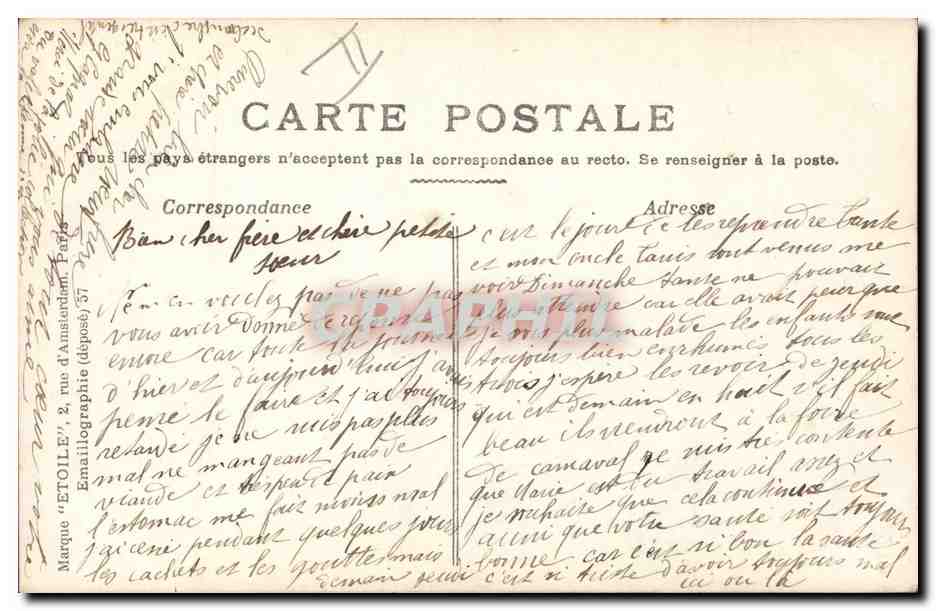 II
CARTE POSTALE
Tous les pays étrangers n'acceptent pas la correspondance au recto. Se renseigner à la poste.
Correspondance
Adresse
Bien cher frère et chère petite
sœur
Ne m'en veulez pas de ne pas
vous avoir donné réponse
encore car toute la journée
d'hier et d'aujourd'hui j'avais
pensé le faire et j'ai toujours
retardé je ne suis pas plus
mal ne mangeant pas de
viande et très peu de pain
l'estomac me fait moins mal
j'ai cessé pendant quelques jours
les cachets et les gouttes mais
demain jeudi
c'est le jour de les reprendre tante
et mon oncle Louis sont venus me
voir Dimanche tante ne pouvait
plus attendre car elle avait peur que
je sois plus malade les enfants sont
toujours bien enrhumés tous les
trois j'espère les revoir de jeudi
qui est demain en huit s'il fait
beau ils viendront à la foire
de carnaval je suis très contente
que Marie est du travail assez et
je souhaite que cela continue et
aussi que votre santé soit toujours
bonne car c'est si bon la santé
c'est si triste d'avoir toujours mal
ici ou là
Au revoir bien cher
frère
et chère petite sœur
je vous embrasse
grande sœur qui
vous aime
cœur votre
Marque "ETOILE", 2, rue d'Amsterdam, Paris
Emaillographie (déposé) 57
GRAPHI